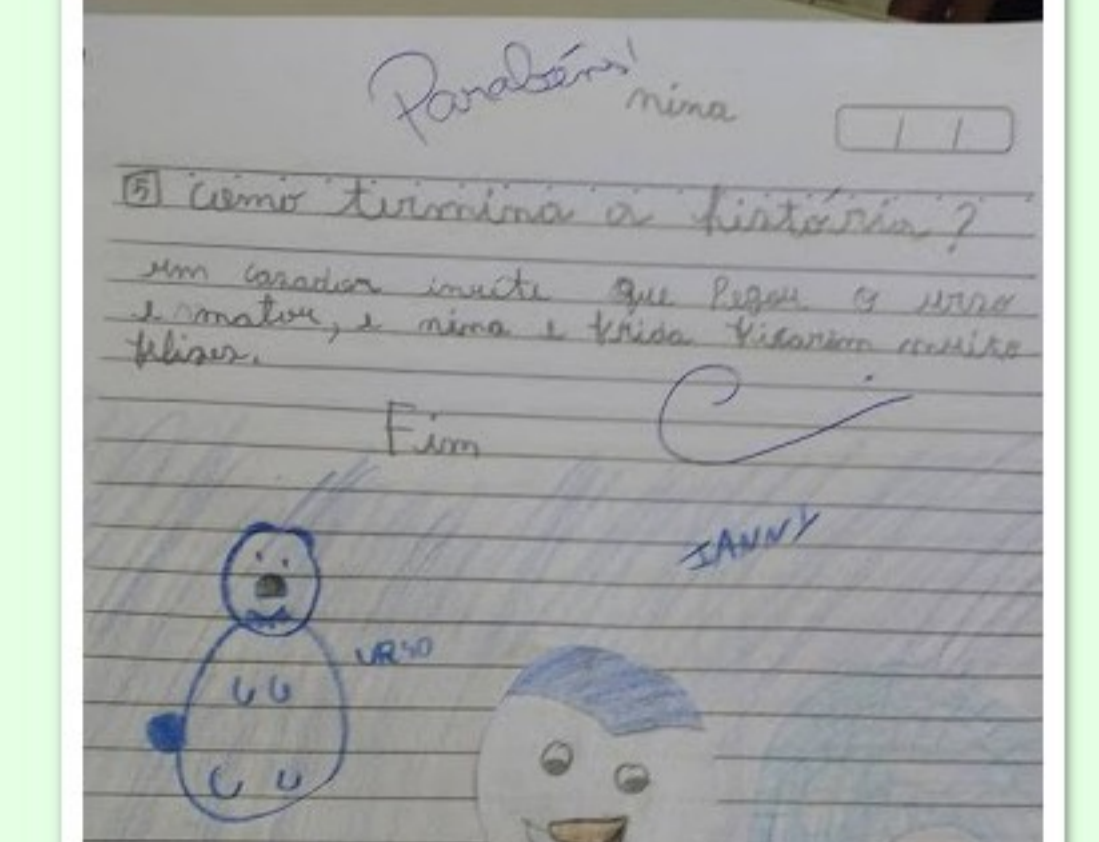 Parabéns!
nina
5 como termina a história?
um casador inuite que Pegou o urso
e matou, e nina e frida ficarim muito
felises.
Fim
JANNY
URSO